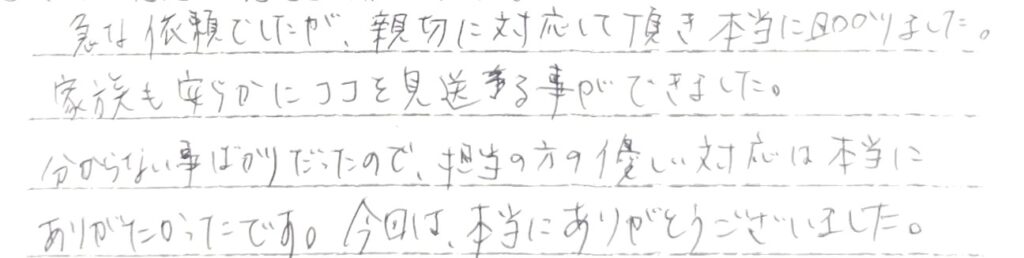 急な依頼でしたが、親切に対応して頂き本当に助かりました。
家族も安らかにココを見送る事ができました。
分からない事ばかりだったので、担当の方の優しい対応は本当に
ありがたかったです。今回は、本当にありがとうございました。